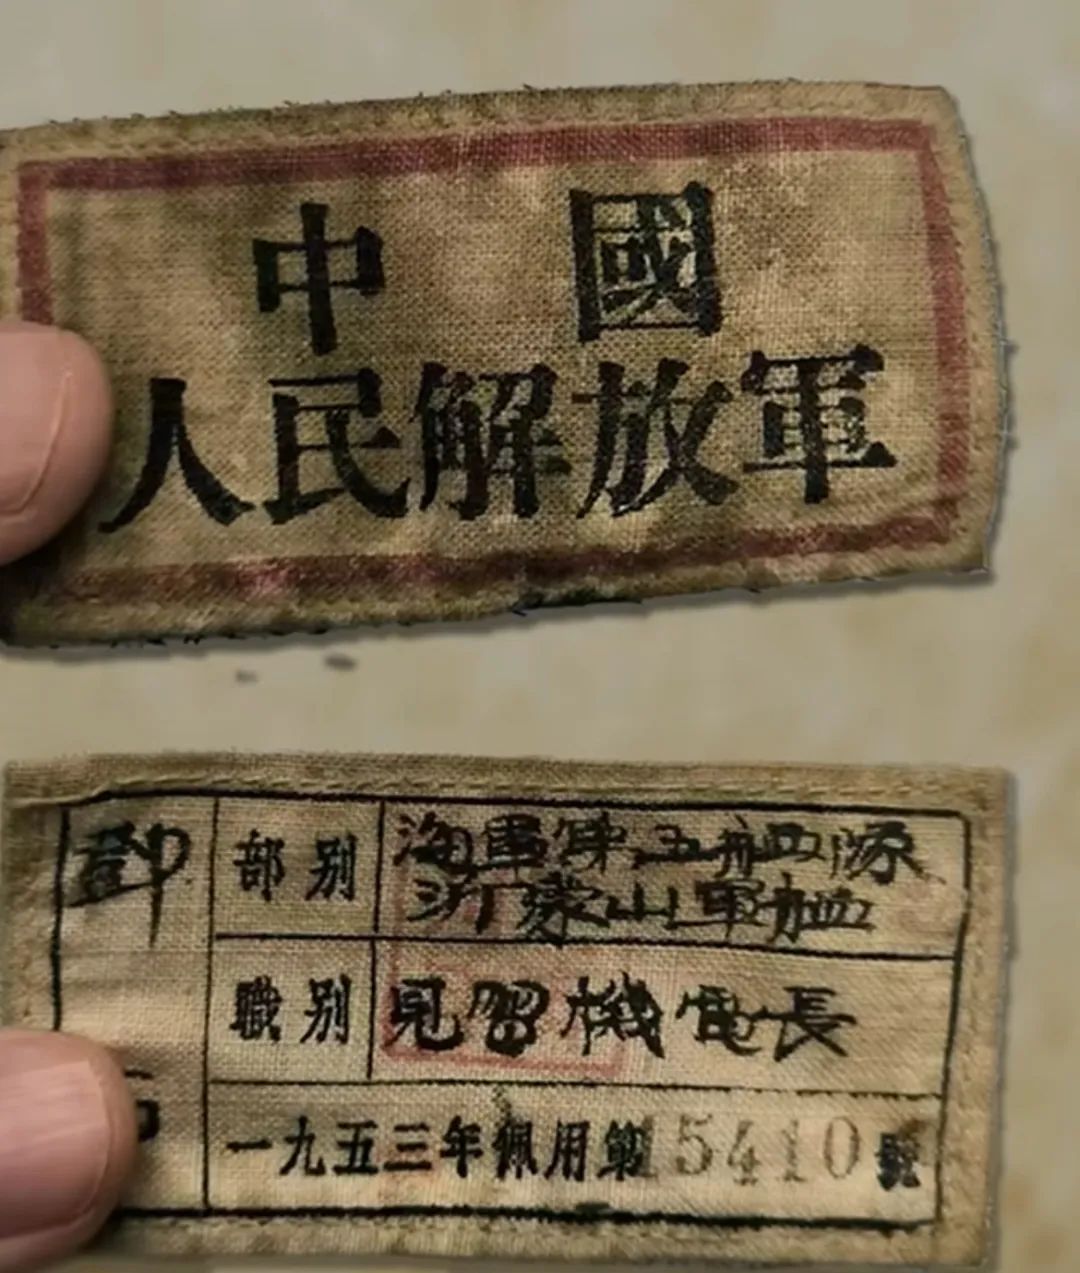 中國
人民解放軍
鄧
部别
海軍第五艦隊
沂蒙山軍艦
職别
見習機電長
一九五三年佩用第15410號